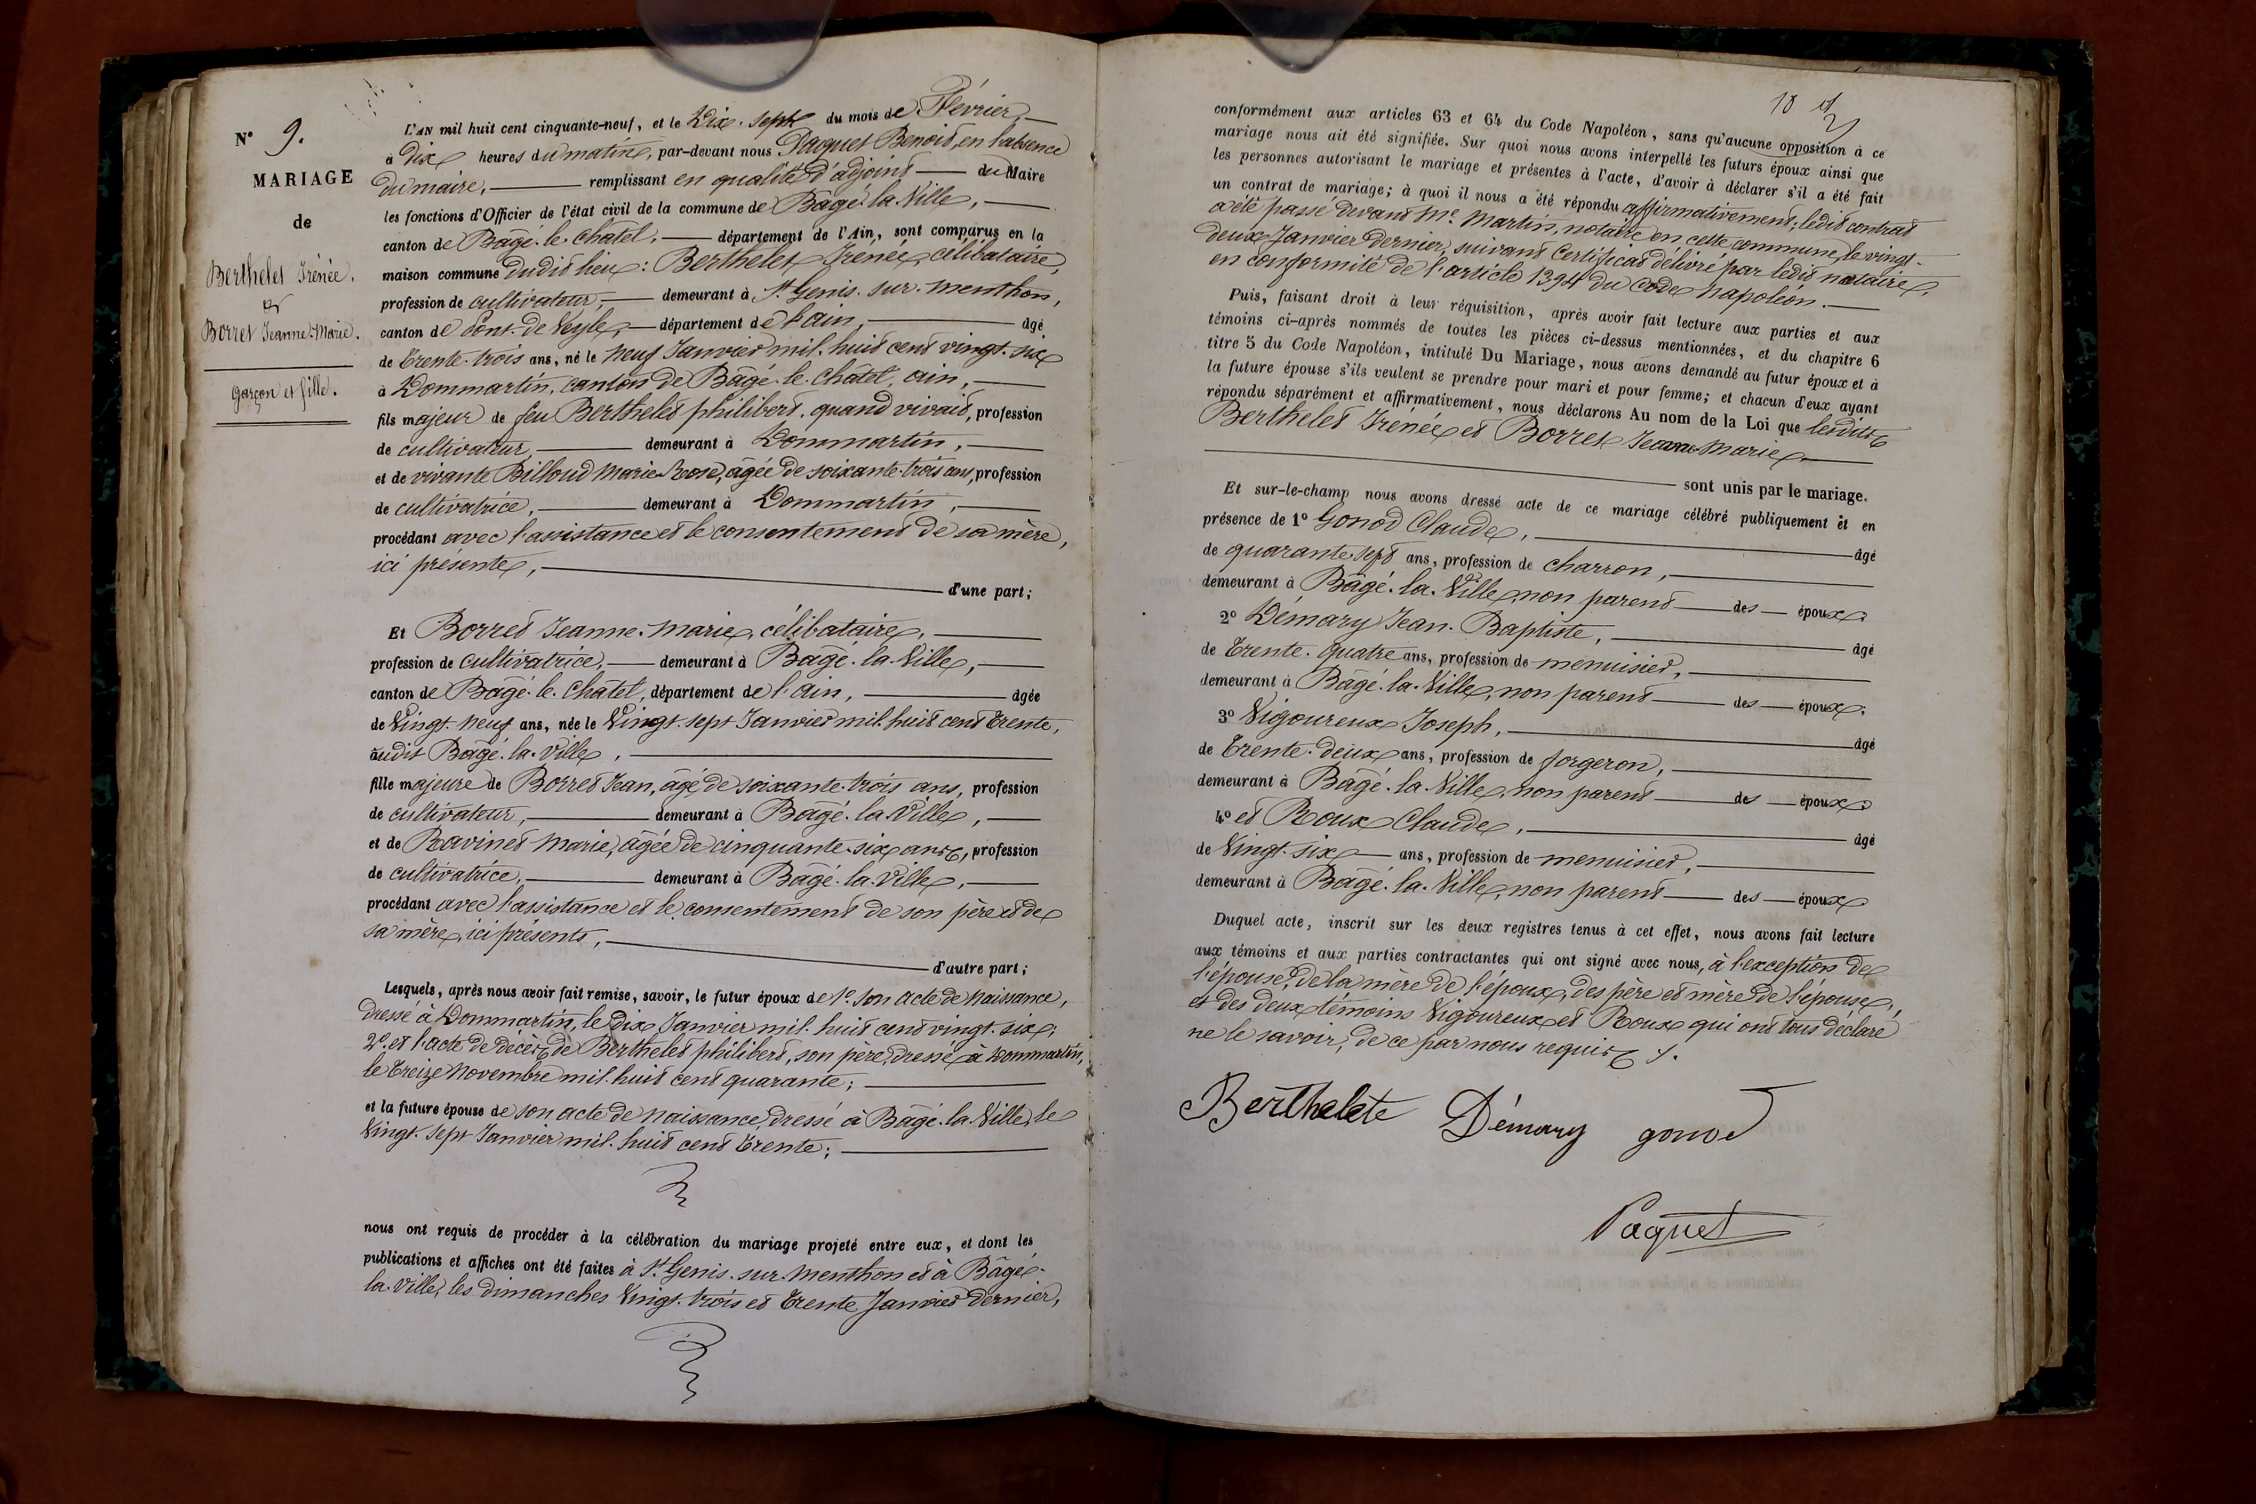 N° 9.
MARIAGE
de
Berthelet Irénée.
et
Borret Jeanne-Marie.
garçon et fille.
L'AN mil huit cent cinquante-neuf, et le Dix-sept du mois de Février
à dix heures du matin, par-devant nous Paquet Benoit, en l'absence
du maire, remplissant en qualité d'adjoint du Maire
les fonctions d'Officier de l'état civil de la commune de Bâgé-la-Ville,
canton de Bâgé-le-Châtel, département de l'Ain, sont comparus en la
maison commune dudit lieu : Berthelet Irénée, célibataire,
profession de cultivateur, demeurant à St Genis-sur-Menthon,
canton de Pont-de-Veyle, département de l'ain, âgé
de Trente-trois ans, né le neuf Janvier mil-huit cent vingt-six
à Dommartin, canton de Bâgé-le-Châtel, ain,
fils majeur de feu Berthelet philibert, quand vivait, profession
de cultivateur, demeurant à Dommartin,
et de vivante Billoud Marie-Rose, âgée de soixante-trois ans, profession
de cultivatrice, demeurant à Dommartin,
procédant avec l'assistance et le consentement de sa mère,
ici présente, d'une part;
Et Borret Jeanne-Marie, célibataire,
profession de cultivatrice, demeurant à Bâgé-la-Ville,
canton de Bâgé-le-Châtel, département de l'ain, âgée
de Vingt-neuf ans, née le Vingt-sept Janvier mil-huit cent Trente,
audit Bâgé-la-Ville,
fille majeure de Borret Jean, âgé de soixante-trois ans, profession
de cultivateur, demeurant à Bâgé-la-Ville,
et de Ravinet Marie, âgée de cinquante-six ans, profession
de cultivatrice, demeurant à Bâgé-la-Ville,
procédant avec l'assistance et le consentement de son père et de
sa mère, ici présents, d'autre part;
Lesquels, après nous avoir fait remise, savoir, le futur époux de 1° son acte de Naissance,
dressé à Dommartin, le Dix Janvier mil-huit cent vingt-six;
2° et l'acte de décès de Berthelet philibert, son père, dressé à Dommartin,
le Treize Novembre mil-huit cent quarante;
et la future épouse de son acte de Naissance, dressé à Bâgé-la-Ville, le
Vingt-sept Janvier mil-huit cent Trente;
nous ont requis de procéder à la célébration du mariage projeté entre eux, et dont les
publications et affiches ont été faites à St Genis-sur-Menthon et à Bâgé-
la-Ville, les dimanches Vingt-trois et Trente Janvier dernier,
10
conformément aux articles 63 et 64 du Code Napoléon, sans qu'aucune opposition à ce
mariage nous ait été signifiée. Sur quoi nous avons interpellé les futurs époux ainsi que
les personnes autorisant le mariage et présentes à l'acte, d'avoir à déclarer s'il a été fait
un contrat de mariage; à quoi il nous a été répondu affirmativement; ledit contrat
a été passé devant Me Martin, notaire en cette commune, le vingt-
deux Janvier dernier, suivant Certificat délivré par ledit notaire,
en conformité de l'article 1394 du Code Napoléon.
Puis, faisant droit à leur réquisition, après avoir fait lecture aux parties et aux
témoins ci-après nommés de toutes les pièces ci-dessus mentionnées, et du chapitre 6
titre 5 du Code Napoléon, intitulé Du Mariage, nous avons demandé au futur époux et à
la future épouse s'ils veulent se prendre pour mari et pour femme; et chacun d'eux ayant
répondu séparément et affirmativement, nous déclarons Au nom de la Loi que lesdits
Berthelet Irénée et Borret Jeanne-Marie
sont unis par le mariage.
Et sur-le-champ nous avons dressé acte de ce mariage célébré publiquement et en
présence de 1° Gonod Claude, âgé
de quarante-sept ans, profession de charron,
demeurant à Bâgé-la-Ville, non parent des époux.
2° Démary Jean-Baptiste, âgé
de Trente-quatre ans, profession de menuisier,
demeurant à Bâgé-la-Ville, non parent des époux.
3° Vigoureux Joseph, âgé
de Trente-deux ans, profession de forgeron,
demeurant à Bâgé-la-Ville, non parent des époux.
4° et Roux Claude, âgé
de Vingt-six ans, profession de menuisier,
demeurant à Bâgé-la-Ville, non parent des époux
Duquel acte, inscrit sur les deux registres tenus à cet effet, nous avons fait lecture
aux témoins et aux parties contractantes qui ont signé avec nous, à l'exception de
l'épouse, de la mère de l'époux, des père et mère de l'épouse,
et des deux témoins Vigoureux et Roux qui ont tous déclaré
ne le savoir, de ce par nous requis.
Berthelete Démary gonod
Paquet